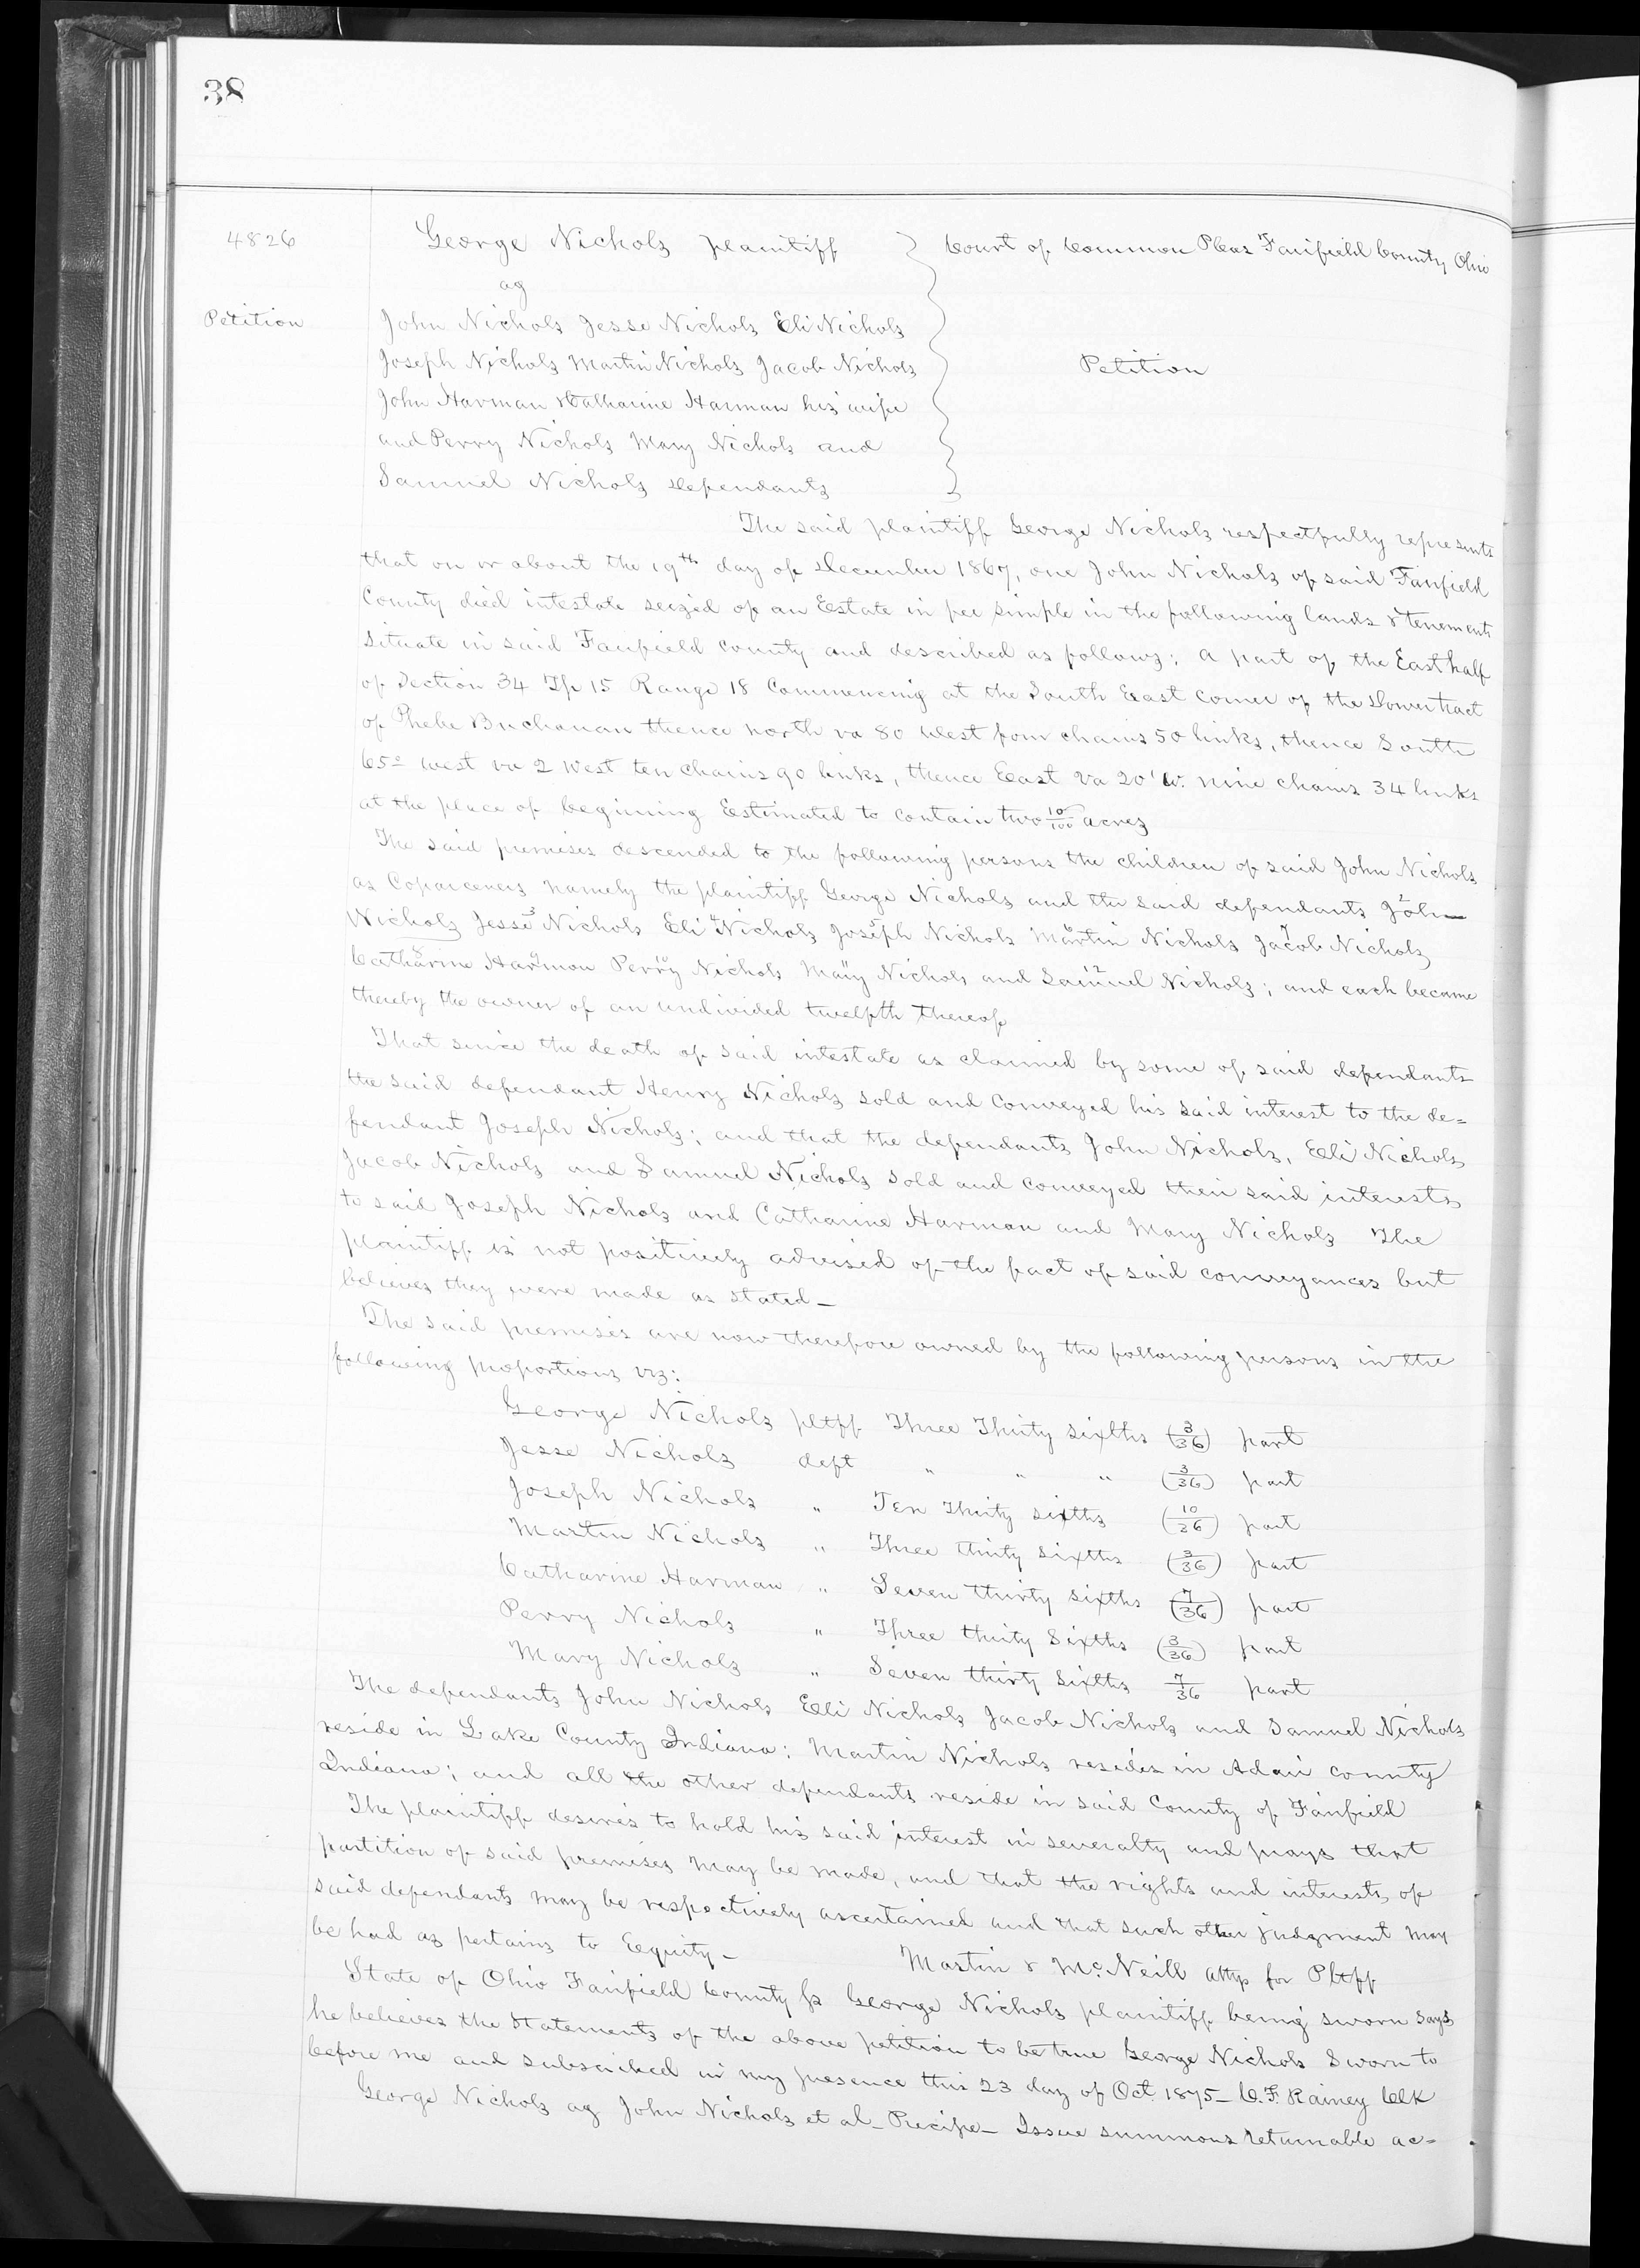 38
4826
George Nichols plaintiff
Court of Common Pleas Fairfield County Ohio
ag
Petition
John Nichols Jesse Nichols Eli Nichols
Joseph Nichols Martin Nichols Jacob Nichols
Petition
John Harman & Catharine Harman his wife
and Perry Nichols Mary Nichols and
Samuel Nichols Defendants
The said plaintiff George Nichols respectfully represents
that on or about the 19th day of December 1867, one John Nichols of said Fairfield
County died intestate seized of an Estate in fee simple in the following lands & tenements
situate in said Fairfield County and described as follows; a part of the East half
of Section 34 Tp 15 Range 18 Commencing at the South East corner of the Dower tract
of Phebe Buchanan thence north va 80 West four chains 50 links, thence South
65° west va 2 West ten chains 90 links, thence East va 20' W. nine chains 34 links
at the place of beginning Estimated to contain two 10/100 acres
The said premises descended to the following persons the children of said John Nichols
as Coparceners namely the plaintiff George Nichols and the said defendants John 2
Nichols Jesse 3 Nichols Eli 4 Nichols Joseph 5 Nichols Martin 6 Nichols Jacob 7 Nichols
Catharine 8 Harmon 9 Perry 10 Nichols Mary 11 Nichols and Samuel 12 Nichols; and each became
thereby the owner of an undivided twelfth thereof
That since the death of said intestate as claimed by some of said defendants
the said defendant Henry Nichols sold and conveyed his said interest to the de=
fendant Joseph Nichols; and that the defendants John Nichols, Eli Nichols
Jacob Nichols and Samuel Nichols sold and conveyed their said interests
to said Joseph Nichols and Catharine Harman and Mary Nichols The
plaintiff is not positively advised of the fact of said conveyances but
believes they were made as stated –
The said premises are now therefore owned by the following persons in the
following proportions viz:
George Nichols pltff Three Thirty sixths (3/36) part
Jesse Nichols deft " " " (3/36) part
Joseph Nichols " Ten Thirty sixths (10/36) part
Martin Nichols " Three thirty sixths (3/36) part
Catharine Harman " Seven thirty sixths (7/36) part
Perry Nichols " Three thirty sixths (3/36) part
Mary Nichols " Seven thirty sixths 7/36 part
The defendants John Nichols Eli Nichols Jacob Nichols and Samuel Nichols
reside in Lake County Indiana; Martin Nichols resides in Adair County
Indiana; and all the other defendants reside in said County of Fairfield
The plaintiff desires to hold his said interest in severalty and prays that
partition of said premises may be made, and that the rights and interests of
said defendants may be respectively ascertained and that such other judgment may
be had as pertains to Equity –
Martin & McNeill attys for Pltff
State of Ohio Fairfield County ss George Nichols plaintiff being sworn says
he believes the statements of the above petition to be true George Nichols Sworn to
before me and subscribed in my presence this 23 day of Oct. 1875 – C. F. Rainey Clk
George Nichols ag John Nichols et al – Precipe – Issue summons returnable ac=